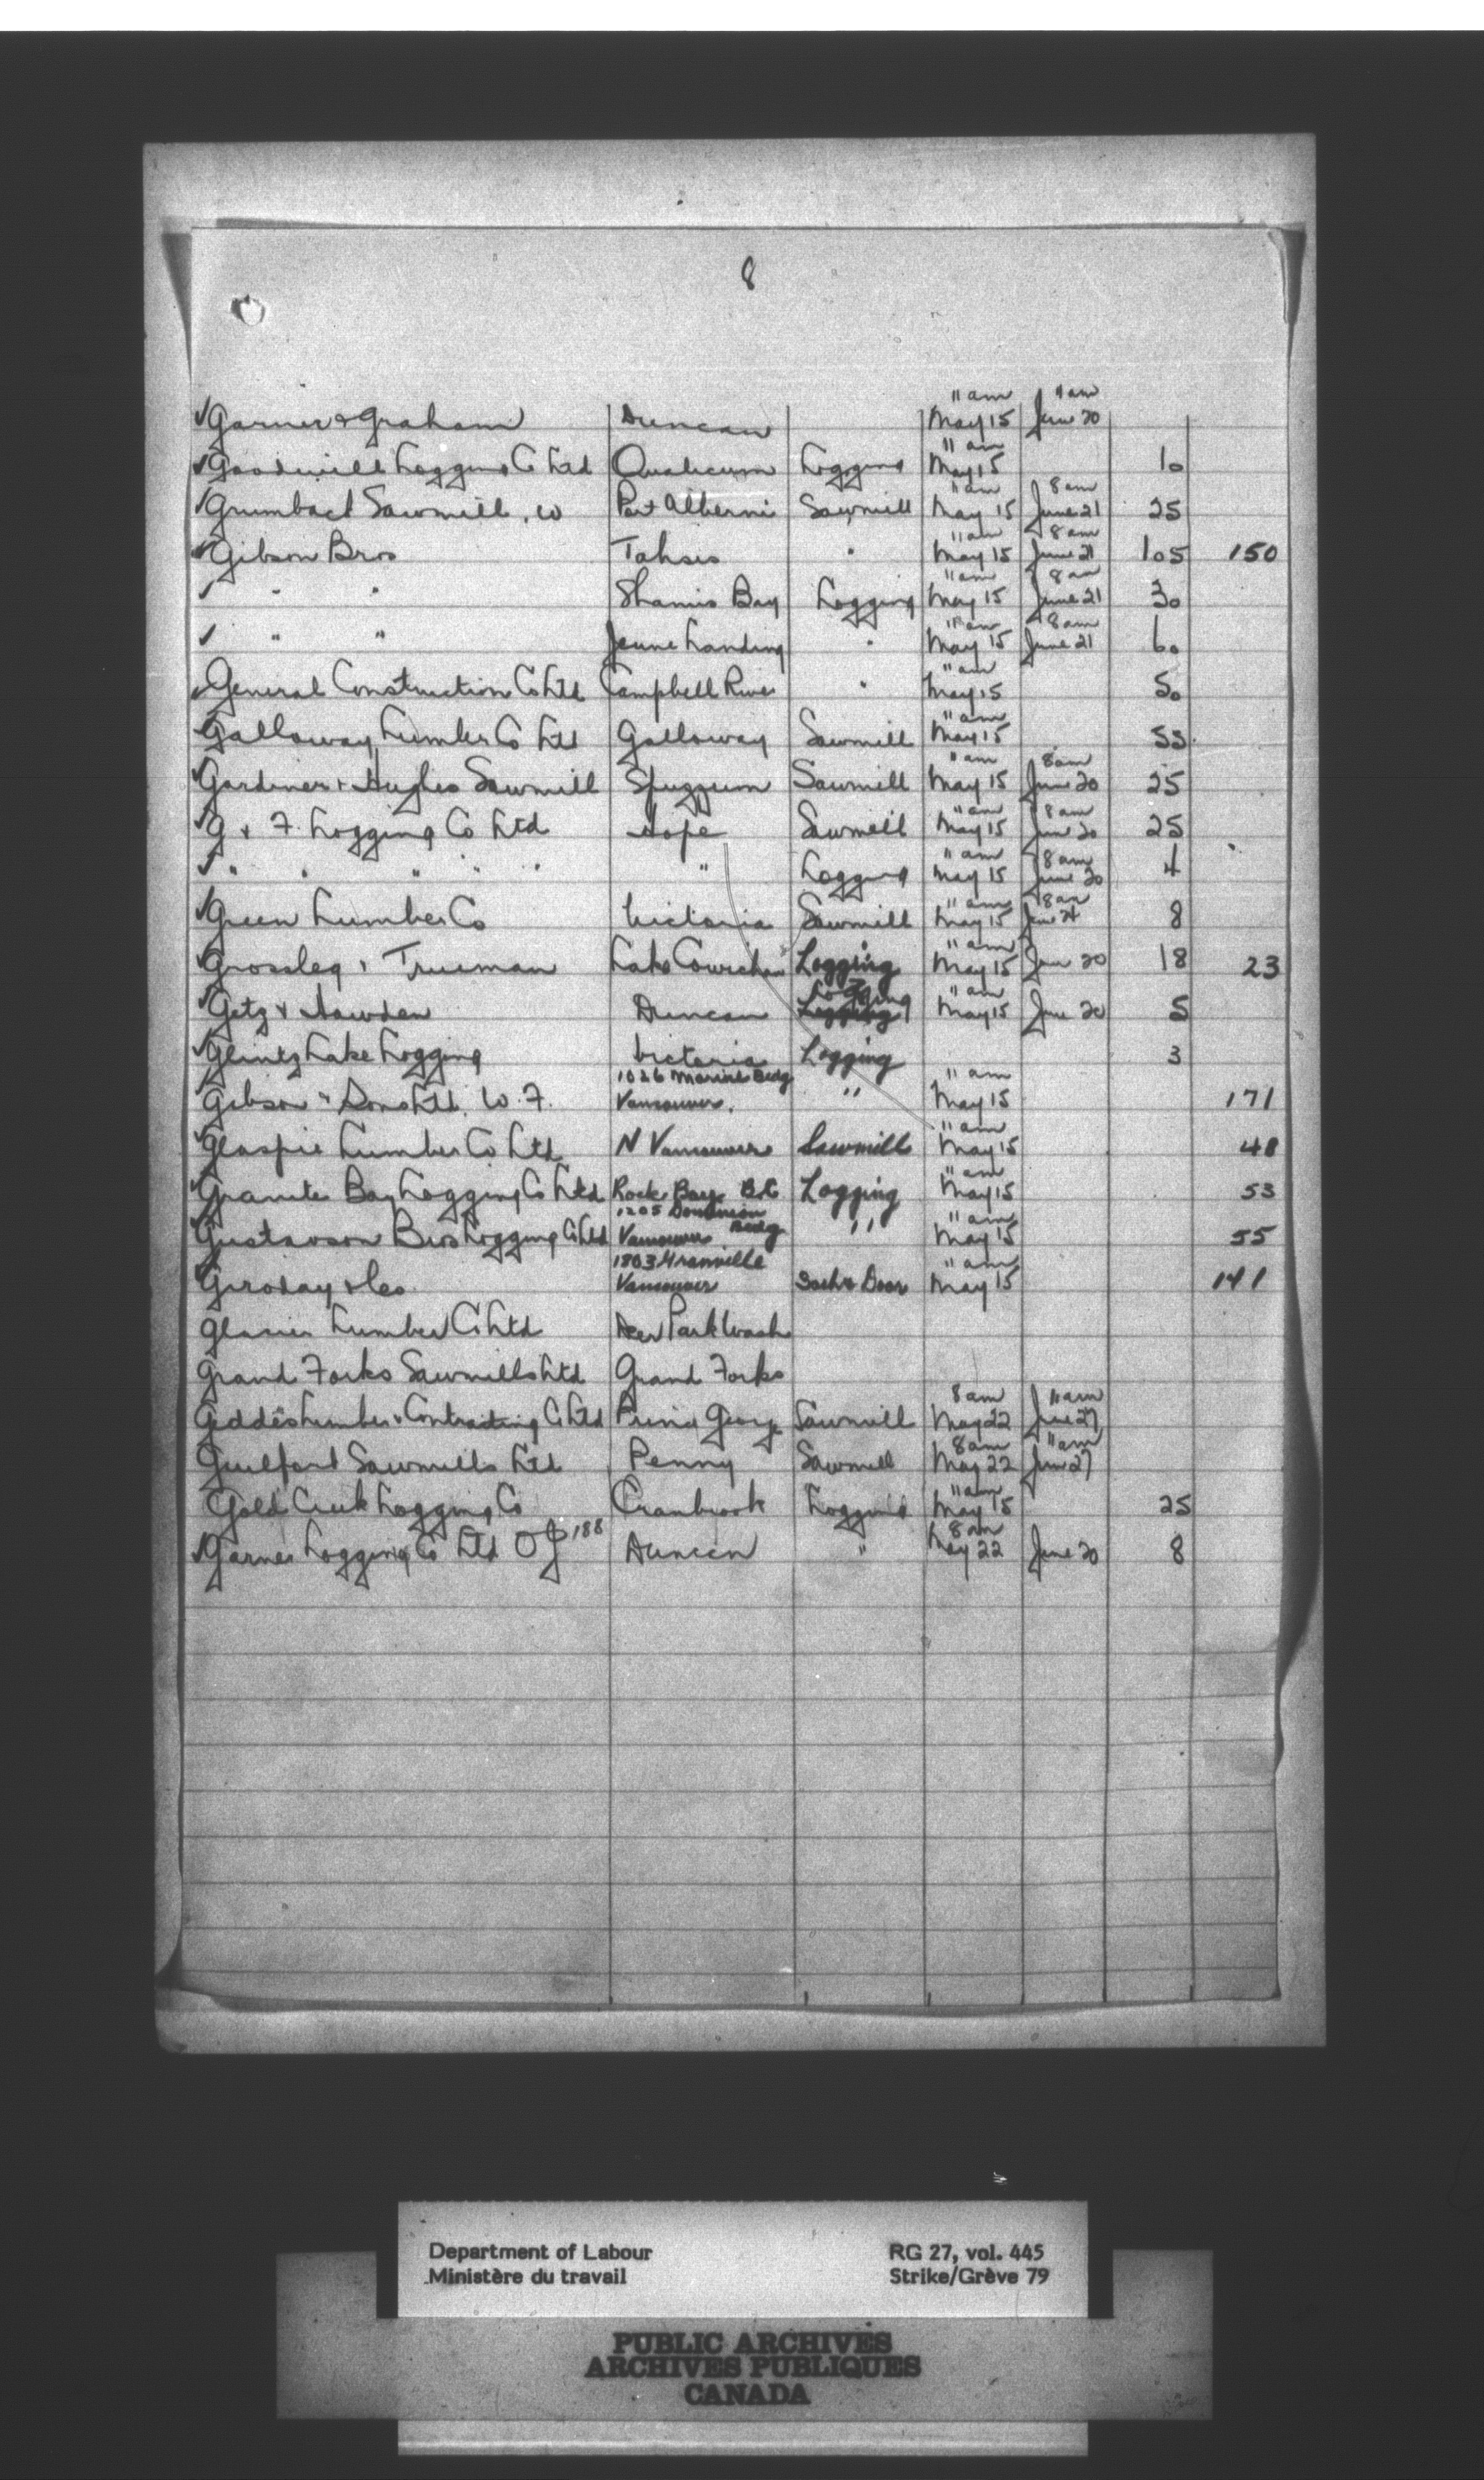 8
✓ Garner & Graham Duncan 11 am May 15 11 am June 20
✓ Goodwill Logging Co Ltd Qualicum Logging 11 am May 15 10
✓ Grumback Sawmill, W Port Alberni Sawmill 11 am May 15 8 am June 21 25
✓ Gibson Bros Tahsis " 11 am May 15 8 am June 21 105 150
✓ " " Shamis Bay Logging 11 am May 15 8 am June 21 30
✓ " " Jeune Landing " 11 am May 15 8 am June 21 60
✓ General Construction Co Ltd Campbell River " 11 am May 15 50
✓ Galloway Lumber Co Ltd Galloway Sawmill 11 am May 15 55
✓ Gardiner & Hughes Sawmill Spuzzum Sawmill 11 am May 15 8 am June 20 25
✓ G & F. Logging Co Ltd Hope Sawmill 11 am May 15 8 am June 20 25
✓ " " " " " " Logging 11 am May 15 8 am June 20 4
✓ Green Lumber Co Victoria Sawmill 11 am May 15 8 am June 8
✓ Grossleg & Trueman Lake Cowichan Logging 11 am May 15 June 20 18 23
✓ Getz & Hawden Duncan Logging 11 am May 15 June 20 5
✓ Glintz Lake Logging Victoria Logging 3
✓ Gibson & Sons Ltd. W. F. 1026 Marine Bldg Vancouver. " 11 am May 15 171
✓ Glaspie Lumber Co Ltd N Vancouver Sawmill 11 am May 15 48
✓ Granite Bay Logging Co Ltd Rock Bay B.C Logging 11 am May 15 53
✓ Gustavson Bros Logging Co Ltd 1205 Dominion Bldg Vancouver " 11 am May 15 55
✓ Giroday & Co 1803 Granville Vancouver Sash & Door 11 am May 15 141
Glasier Lumber Co Ltd Deer Park Wash
Grand Forks Sawmills Ltd Grand Forks
Geddes Lumber & Contracting Co Ltd Prince George Sawmill 8 am May 22 11 am June 27
Guilford Sawmills Ltd Penny Sawmill 8 am May 22 11 am June 27
Gold Creek Logging Co Cranbrook Logging 11 am May 15 25
✓ Garner Logging Co Ltd 188 Duncan " 8 am May 22 June 20 8
Department of Labour
Ministère du travail
RG 27, vol. 445
Strike/Grève 79
PUBLIC ARCHIVES
ARCHIVES PUBLIQUES
CANADA